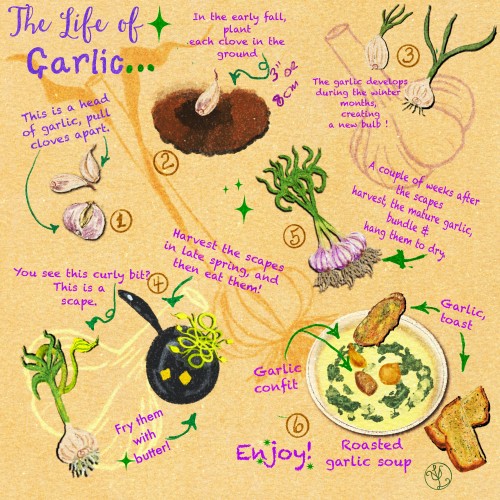 The Life of
Garlic...
This is a head
of garlic, pull
cloves apart.
1
In the early fall,
plant
each clove in the
ground
3" or
8cm
2
3
The garlic develops
during the winter
months,
creating
a new bulb !
You see this curly bit?
This is a
scape.
4
Harvest the scapes
in late spring, and
then eat them!
Fry them
with
butter!
5
A couple of weeks after
the scapes
harvest, the mature garlic,
bundle &
hang them to dry.
6
Enjoy!
Garlic
confit
Garlic,
toast
Roasted
garlic soup